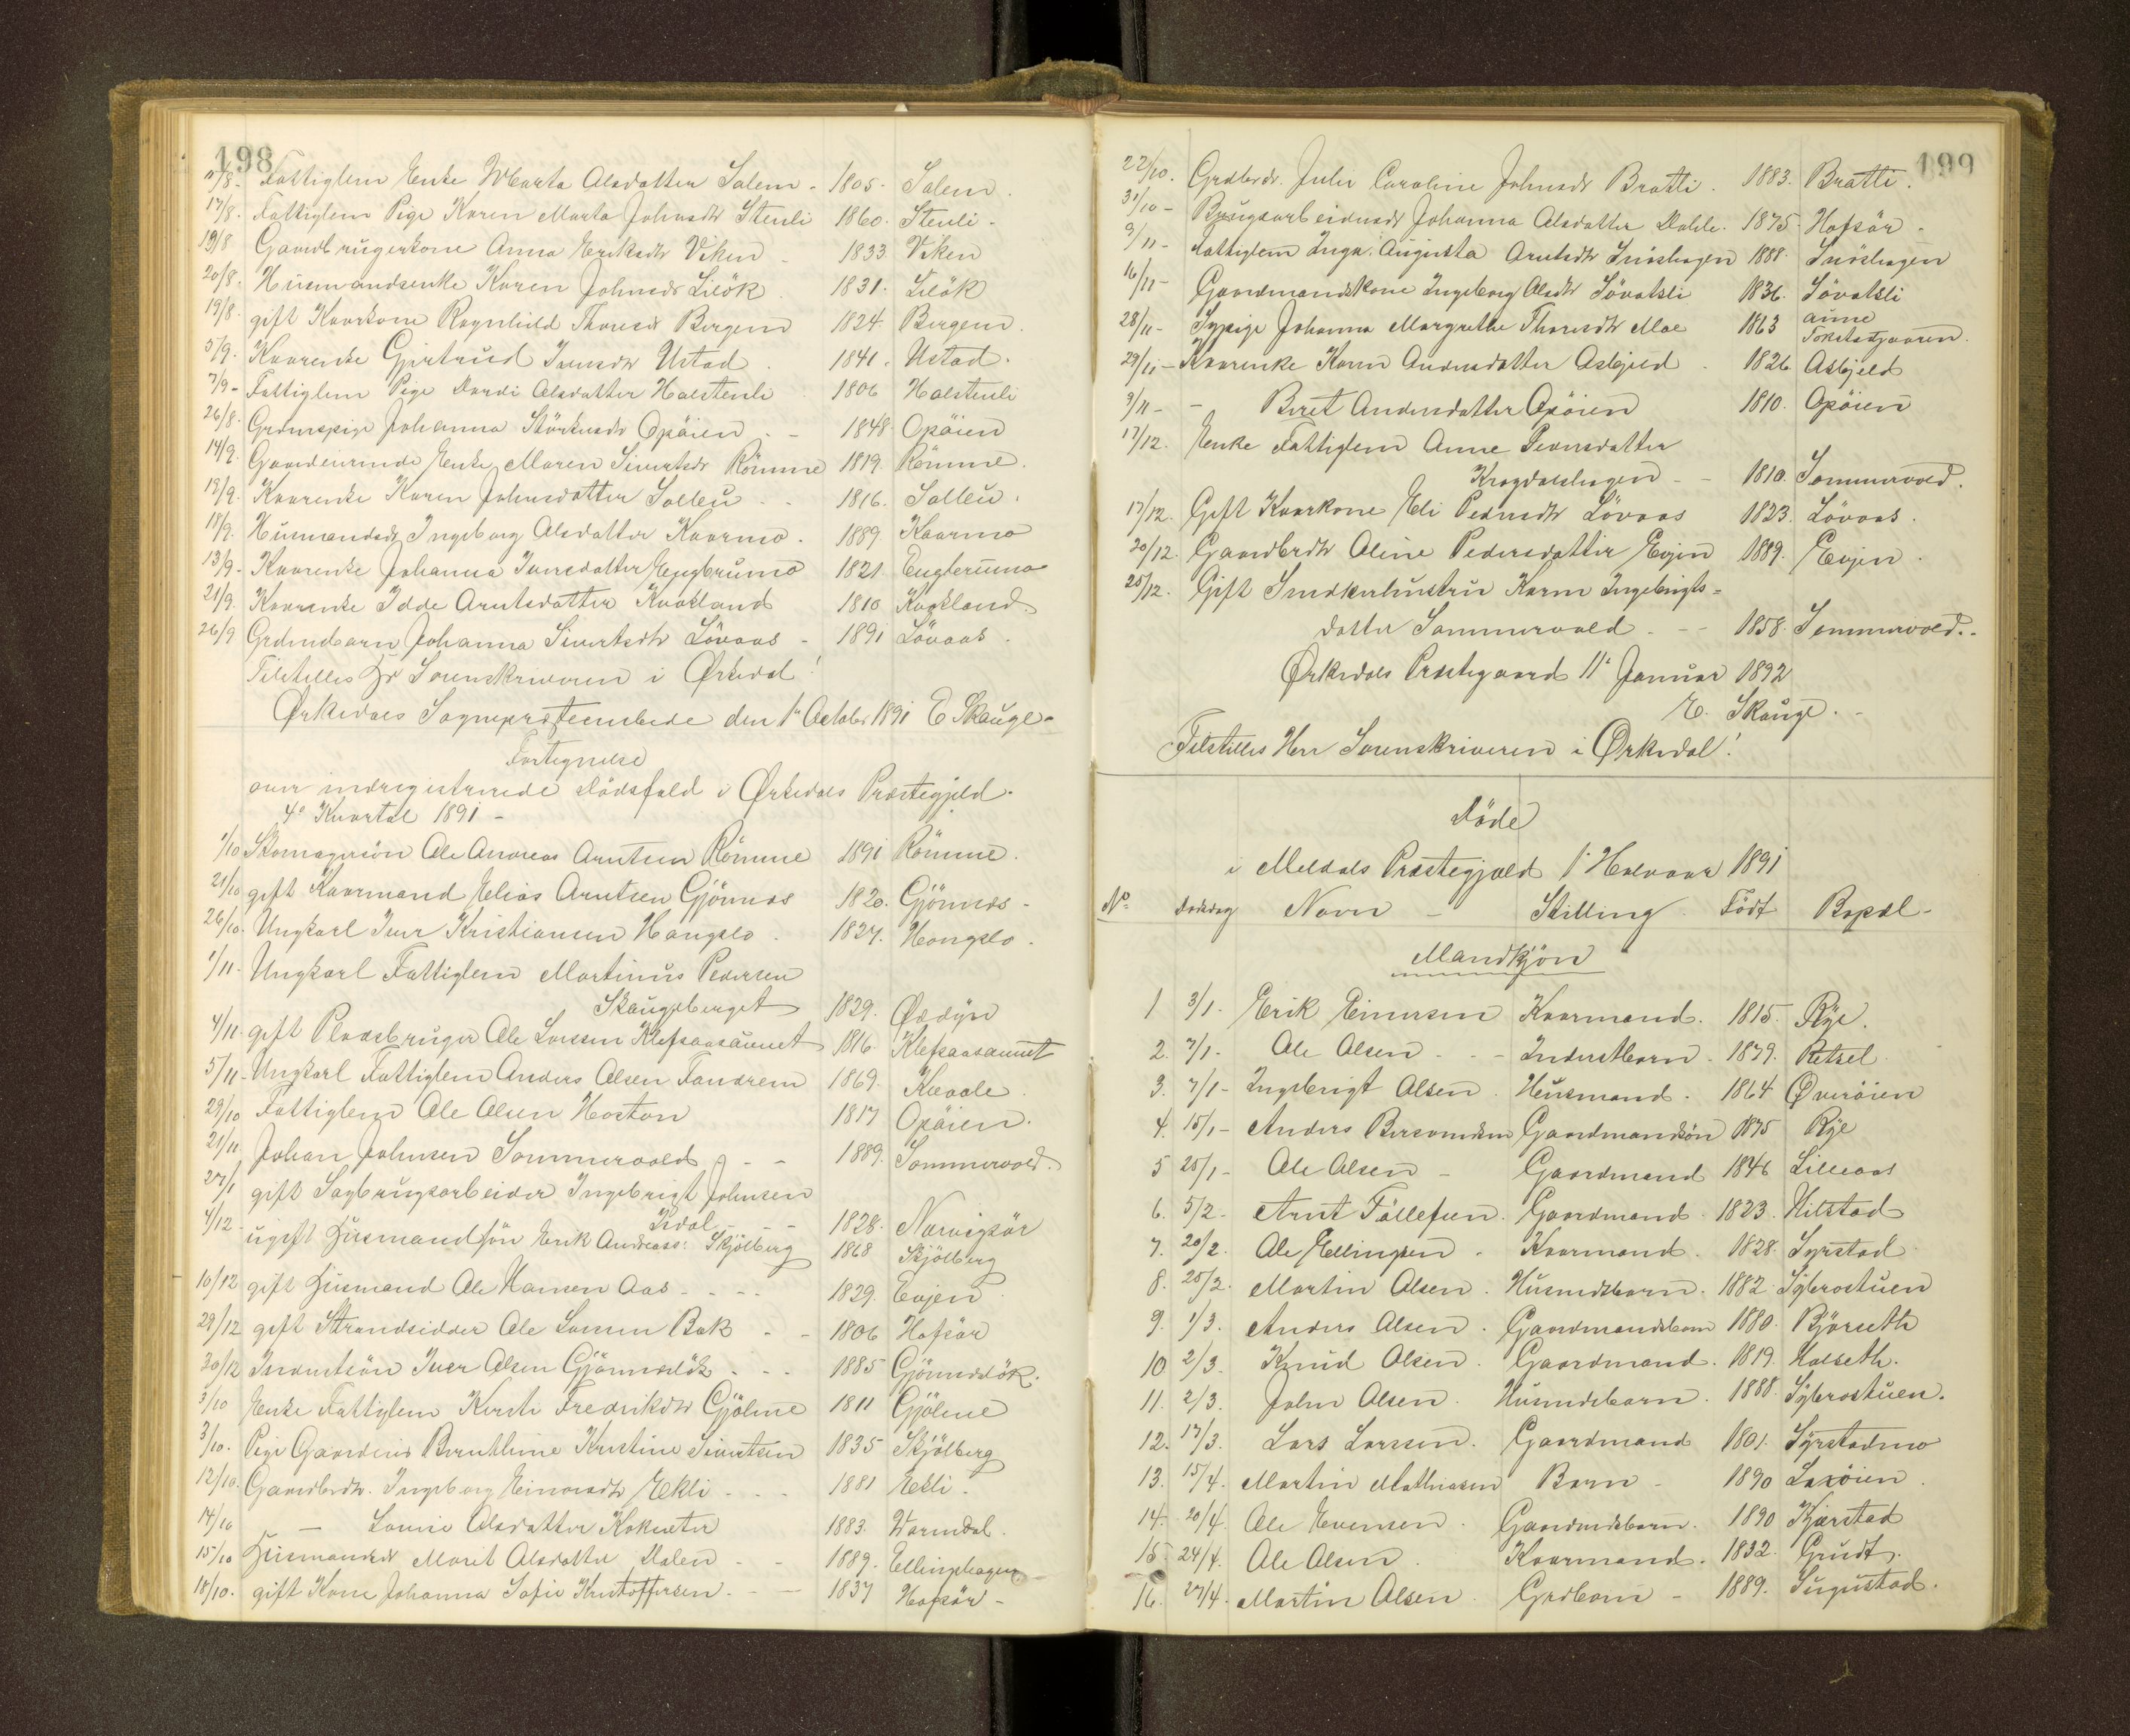 198
11/8 - Fattiglem Enke Marta Olsdatter Solem - 1805. Solem.
17/8. Fattiglem Pige Karen Marta Johnsdtr Stenli 1860. Stenli -
19/8 Gaardbrugerkone Anna Eriksdtr Viken - 1833. Viken
20/8. Husmandsenke Karen Johnsdr Liløk 1831. Liløk
19/8. gift Kaarkone Ragnhild Thoresdr Bergem 1824 Bergem.
5/9. Kaarenke Gjertrud Iversdtr Ustad 1841. Ustad.
7/9 - Fattiglem Pige Dordi Olsdatter Halstenli 1806 Halstenli
26/8. Grdmspige Johanna Størksdr Opøien - 1848 Opøien
14/9. Gaardeierinde Enke Maren Sivertsdr Rømme 1819. Rømme.
19/9. Kaarenke Karen Johnsdatter Solleu - - 1816. Solleu.
18/9. Husmandsdr Ingeborg Olsdatter Kaarmo. 1889 Kaarmo
13/9 - Kaarenke Johanna Iversdatter Engbrumo 1821. Engbrumo
21/9. Kaarenke Idde Arntsdatter Kvakland 1810 Kvakland
26/9 Grdmdbarn Johanna Sivertsdtr Løvaas - 1891 Løvaas.
Tilstilles Hr Sorenskriveren i Ørkedal!
Ørkedals Sogneprestembede den 1ste October 1891 E Skauge -
Fortegnelse
over indregistrerede Dødsfald i Ørkedals Præstegjeld.
4de Kvartal 1891 -
1/10 Skomagersøn Ole Andreas Arntsen Rømme 1891 Rømme.
21/10 gift Kaarmand Elias Arntsen Gjønnes 1820. Gjønnes -
26/10. Ungkarl Iver Kristiansen Hangslo. 1827. Hongslo.
1/11. Ungkarl Fattiglem Martinus Pedersen
Skaugeberget 1829. Ødedyn
4/11. gift Pladsbruger Ole Larsen Klefsaasaunet 1816. Klefsaasaunet
5/11 - Ungkarl Fattiglem Anders Olsen Fandrem 1869. Kvaale.
29/10 Fattiglem Ole Olsen Hoston 1817 Opøien.
21/11 Johan Johnsen Sommervold - - 1889. Sommervold.
27/1 gift Sagbrugsarbeider Ingebrigt Johnsen
Isdal - - 1828. Norvigsør
4/12 - ugift Husmandssøn Erik Andreass: Skjølberg 1868 Skjølberg
10/12 gift Husmand Ole Hansen Aas - - - - 1829. Evjen
29/12 gift Strandsidder Ole Larsen Bak - - 1806 Hofsør
30/12 Inderstsøn Iver Olsen Gjønnesløk - - - 1885 Gjønnesløk.
3/10 Enke Fattiglem Kirsti Fredriksdtr Gjølme 1811 Gjølme
3/10. Pige Gaardeier Bernthine Kristine Sivertsen 1835 Skjølberg
12/10. Gaardbrdtr. Ingeborg Einarsdtr Ekli - - - 1881 Ekli.
14/10 - Lovise Olsdatter Kokseter 1883. Vormdal.
15/10 Husmandsdr Marit Olsdatter Dalen - - 1889. Ellingshagen
18/10. gift Kone Johanna Sofie Kristoffersen - - - 1837 Hofsør -
199
22/10. Grdbrdr. Julie Caroline Johnsdr Bratli. 1883. Bratli.
31/10 - Brugsarbeidersdr Johanna Olsdatter Dahle. 1875. Hofsør -
9/11 - Fattiglem Inga Augusta Arntsdtr Snøshagen 1888. Snøshagen
16/11 - Gaardmandskone Ingeborg Olsdtr Løvatsli 1836. Løvatsli
28/11 - Sypige Johanna Margrethe Thoresdtr Moe 1863
29/11 - Kaarenke Karen Andersdatter Asbjeld. 1826. Asbjeld
9/11 - - Beret Andersdatter Opøien 1810. Opøien
17/12. Enke Fattiglem Anne Iversdatter
Krogdalshagen - - 1810. Sommervold.
17/12. Gift Kaarkone Eli Pedersdtr Løvaas 1823. Løvaas.
20/12. Gaardbrdtr Oline Pedersdatter Evjen 1889. Evjen.
25/12. Gift Snedkerhustru Karen Ingebrigts-
datter Sommervold - - - 1858. Sommervold. -
Ørkedals Præstegaard 11te Januar 1892
E. Skauge. -
Tilstilles Herr Sorenskriveren i Ørkedal!
Døde
i Meldals Præstegjæld 1ste Halvaar 1891
No. Dødsdag Navn - Stilling. Født Bopæl -
Mandkjøn
1 3/1. Erik Einersen Kaarmand. 1815. Rye.
2. 7/1 - Ole Olsen - - - Inderstbarn. 1879. Retsel
3. 7/1 - Ingebrigt Olsen. Husmand. 1864 Øverøien
4. 15/1 - Anders Bersvendsen Gaardmandsøn 1875 Rye
5 25/1 - Ole Olsen - Gaardmand 1846 Lilleaas
6. 5/2 - Arnt Tøllefsen. Gaardmand. 1823. Hilstad
7. 20/2. Ole Ellingsen. Kaarmand. 1828. Syrstad
8. 25/2. Martin Olsen. Husmdsbarn. 1882. Sybrostuen
9. 1/3. Anders Olsen. Gaardmandsbarn 1880. Bjørseth
10 2/3. Knud Olsen. Gaardmand. 1819. Halseth.
11. 2/3. John Olsen. Husmdsbarn. 1888. Sybrostuen.
12. 17/3. Lars Larssen. Gaardmand 1801. Syrstadmo
13. 15/4. Martin Mathiasen Barn - 1890 Laxøien.
14. 20/4. Ole Evensen. Gaardmdsbarn. 1890 Kjærstad
15. 24/4. Ole Olsen. Kaarmand. 1832. Grudt.
16. 27/4. Martin Olsen. Grdbarn - 1889. Sugustad.